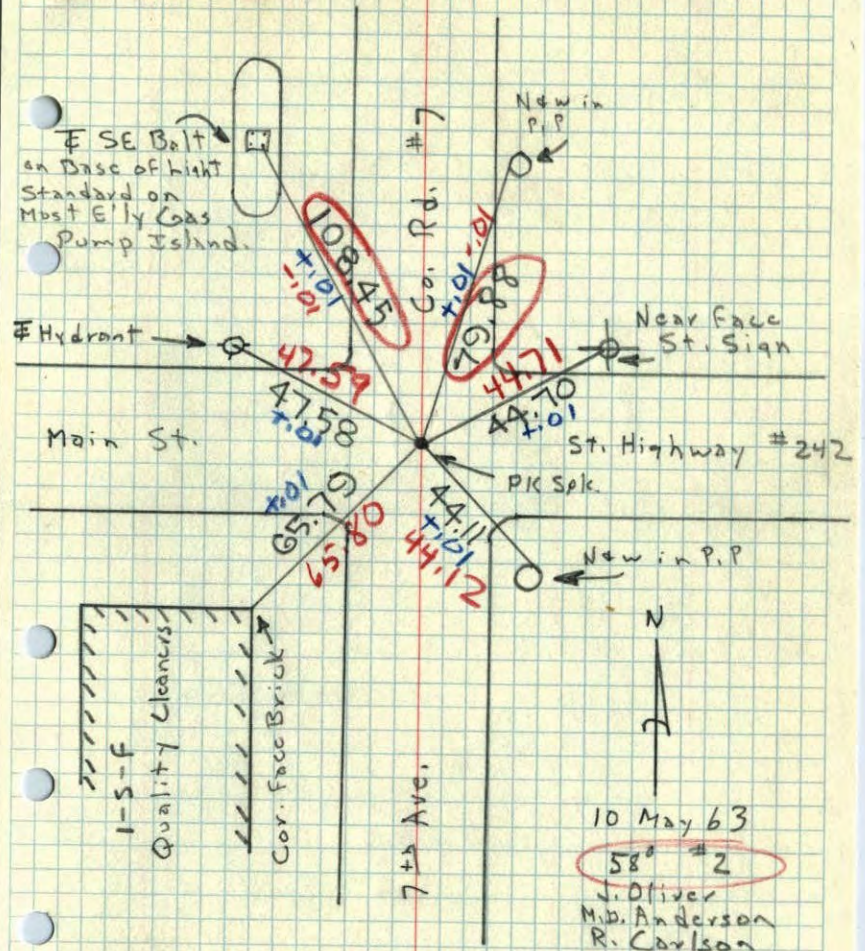 N & W in
P.P
℄ SE Bolt
on Base of Light
Standard on
Most E'ly Gas
Pump Island.
Co. Rd. #7
108.45
+.01
-.01
-.01
+.01
79.88
℄ Hydrant
Near Face
St. Sign
47.59
47.58
+.01
44.71
44.70
+.01
Main St.
St. Highway #242
PK Spk.
+.01
65.79
65.80
44.11
+.01
44.12
N & W in P.P
N
1-S-F
Quality Cleaners
Cor. Face Brick
7th Ave.
10 May 63
58° #2
J. Oliver
M.D. Anderson
R. Carlson